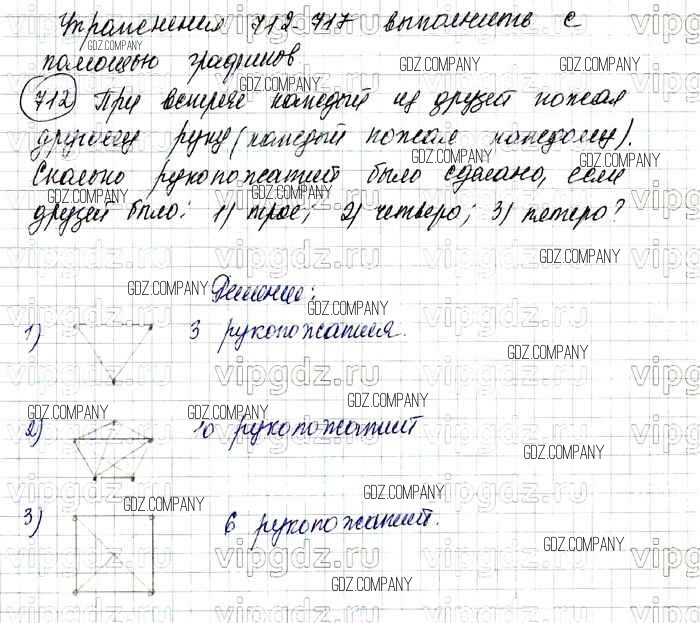 Упражнения 712-717 выполнить с
помощью графинов
712 При встрече каждый из друзей пожал
другому руку (каждый пожал каждому).
Сколько рукопожатий было сделано, если
друзей было: 1) трое; 2) четверо; 3) пятеро?
Решение:
1) 3 рукопожатия.
2) 10 рукопожатий
3) 6 рукопожатий.
GDZ.COMPANY
vipgdz.ru